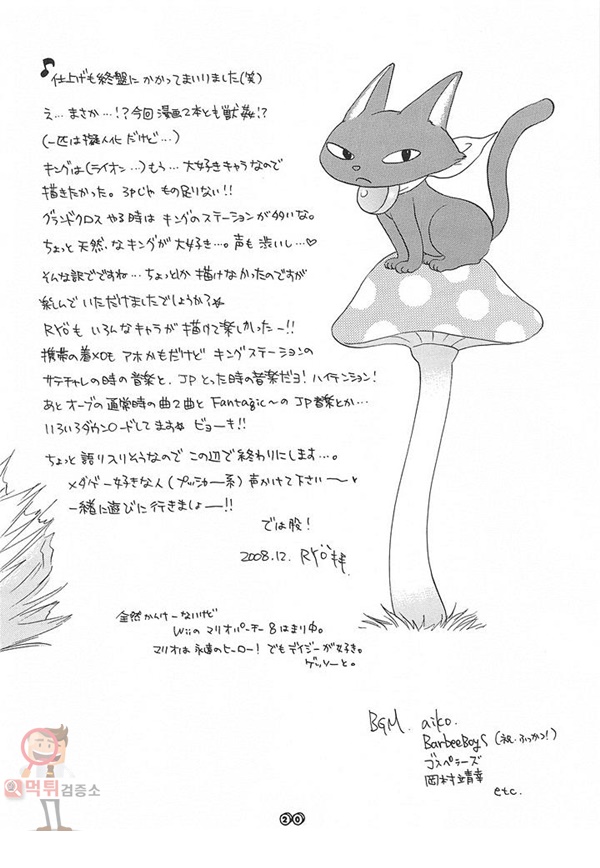 仕上げも終盤にかかってまいりました(笑)
え…まさか…!?今回漫画2本とも獣姦!?
(一匹は擬人化だけど…)
キングは(ライオン…)もう…大好きキャラなので
描きたかった。3Pじゃもの足りない!!
グランドクロスやる時はキングのステーションが多いな。
ちょっと天然なキングが大好き…。声も渋いし…♡
そんな訳でですね…ちょっとしか描けなかったのですが
楽しんでいただけましたでしょうか?☆
RYÖもいろんなキャラが描けて楽しかったー!!
携帯の着メロもアホかもだけどキングステーションの
サテチャレの時の音楽と、JPとった時の音楽だヨ!ハイテンション!
あとオーブの通常時の曲2曲とFantagic〜のJP音楽とか…
いろいろダウンロードしてます☆ビョーキ!!
ちょっと語り入りそうなのでこの辺で終わりにします…。
メダゲー好きな人(プッシャー系)声かけて下さい〜♥
一緒に遊びに行きましょー!!
では股!
2008.12. RYÖ拝
全然かんけーないけど
Wiiのマリオパーテー8はまり中。
マリオは永遠のヒーロー!でもデイジーが好き。
ゲッソーと。
BGM. aiko.
BarbeeBoys (祝・ふっかつ!)
ゴスペラーズ
岡村靖幸
etc.
먹튀검증소
20